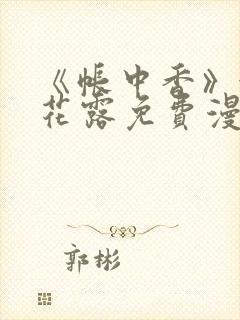 《帐中香》
花露免费漫
郭彬